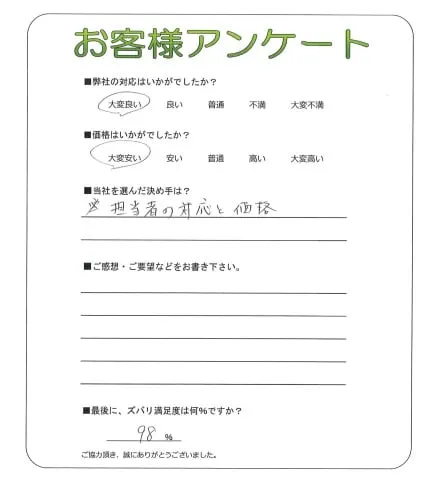 お客様アンケート
■弊社の対応はいかがでしたか？
大変良い 良い 普通 不満 大変不満
■価格はいかがでしたか？
大変安い 安い 普通 高い 大変高い
■当社を選んだ決め手は？
担当者の対応と価格
■ご感想・ご要望などをお書き下さい。
■最後に、ズバリ満足度は何%ですか？
98 %
ご協力頂き、誠にありがとうございました。